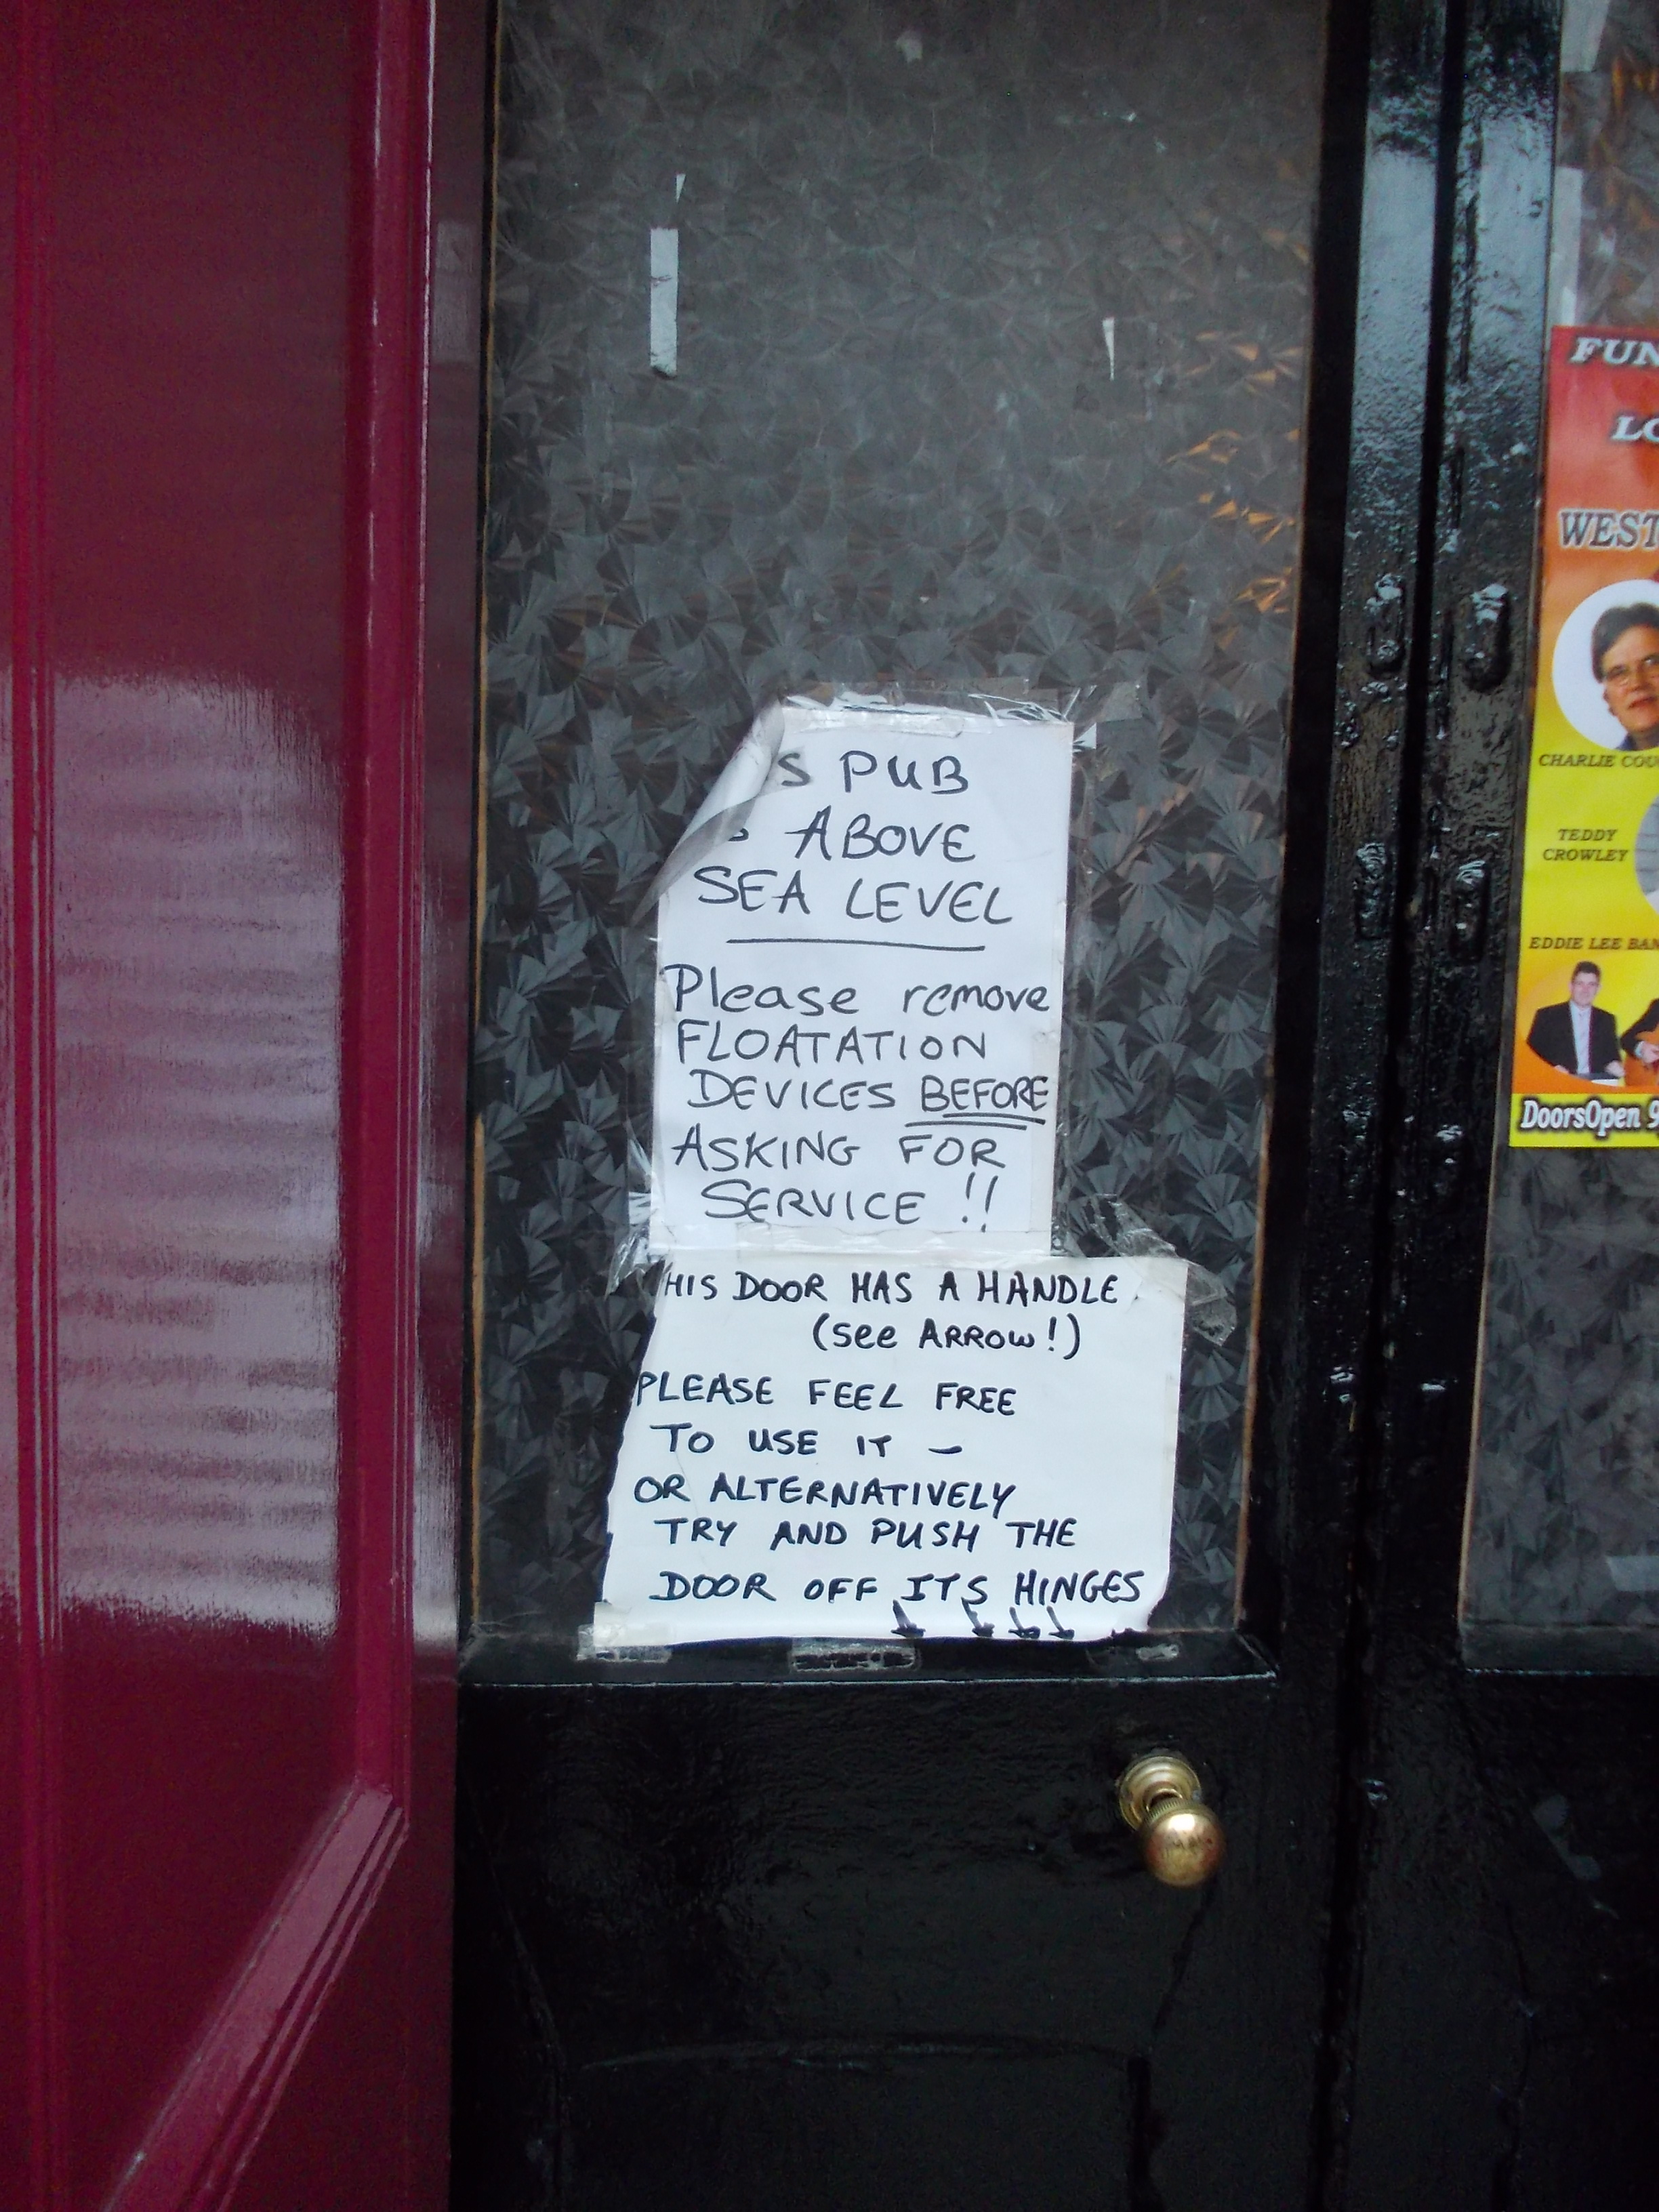 S PUB
ABOVE
SEA LEVEL
Please remove
FLOATATION
DEVICES BEFORE
ASKING FOR
SERVICE !!
HIS DOOR HAS A HANDLE
(see ARROW!)
PLEASE FEEL FREE
TO USE IT –
OR ALTERNATIVELY
TRY AND PUSH THE
DOOR OFF ITS HINGES
FUN
LO
WEST
CHARLIE COU
TEDDY
CROWLEY
EDDIE LEE BAN
DoorsOpen 9